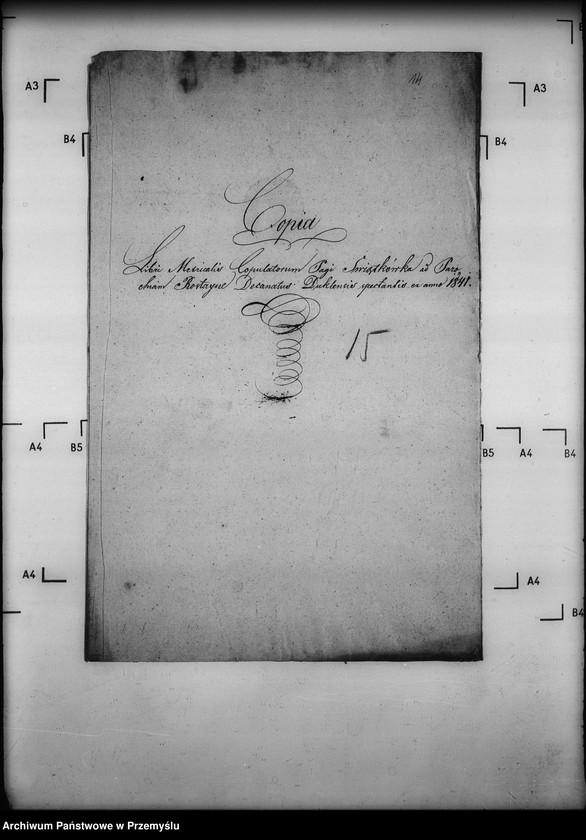 14
Copia
Libri Metricalis Copulatorum Pagi Swiątkówka ad Paro,
chiam Rostayne Decanatus Duklensis spectantis ex anno 1841.
15
A3
A3
B4
B4
A4
B5
B5
A4
B4
A4
A4
B4
Archiwum Państwowe w Przemyślu